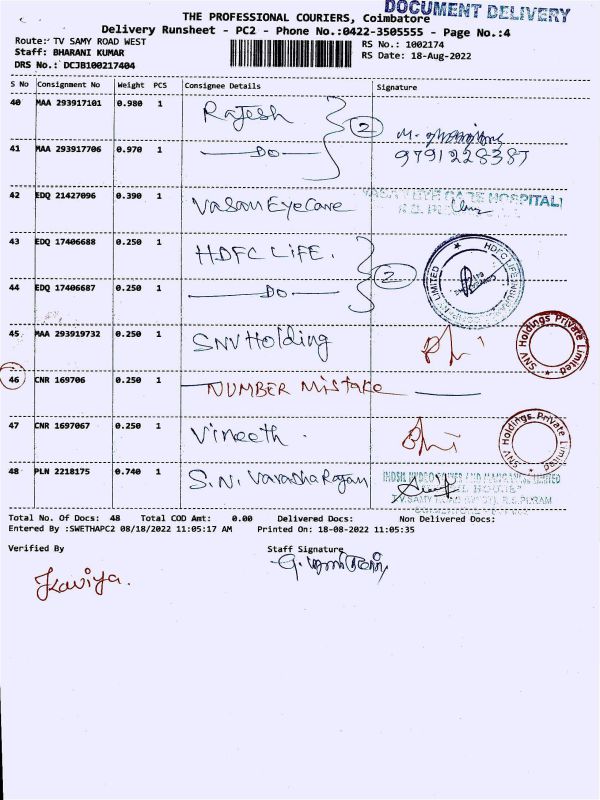 DOCUMENT DELIVERY
THE PROFESSIONAL COURIERS, Coimbatore
Delivery Runsheet - PC2 - Phone No.:0422-3505555 - Page No.:4
Route: TV SAMY ROAD WEST
RS No.: 1002174
Staff: BHARANI KUMAR
RS Date: 18-Aug-2022
DRS No.: DCJB100217404
S No Consignment No Weight PCS Consignee Details Signature
40 MAA 293917101 0.980 1 Rajesh
2
41 MAA 293917706 0.970 1 DO
9791228387
42 EDQ 21427096 0.390 1 Vasan Eye Care EYE CARE HOSPITAL
43 EDQ 17406688 0.250 1 HDFC LIFE.
2
HDFC LIFE LIMITED
44 EDQ 17406687 0.250 1 DO
45 MAA 293919732 0.250 1 SNV Holding
SNV Holdings Private Limited
46 CNR 169706 0.250 1 NUMBER Mistake
47 CNR 1697067 0.250 1 Vineeth.
SNV Holdings Private Limited
48 PLN 2218175 0.740 1 S.N. Varadha Rajan
LIMITED
Total No. Of Docs: 48 Total COD Amt: 0.00 Delivered Docs: Non Delivered Docs:
Entered By :SWETHAPC2 08/18/2022 11:05:17 AM Printed On: 18-08-2022 11:05:35
Verified By Staff Signature
Kaviya.